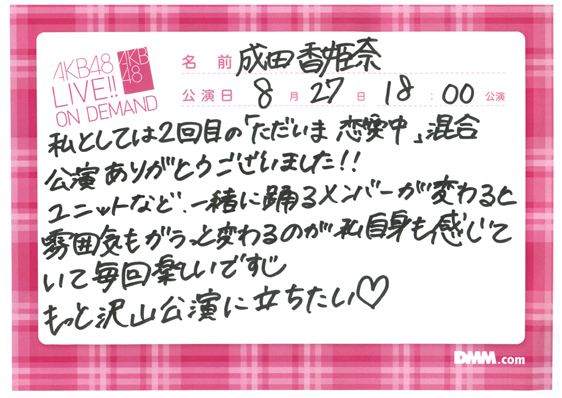 AKB48
LIVE!!
ON DEMAND
AKB
48
名前 成田香姫奈
公演日 8月27日 18:00公演
私としては2回目の「ただいま 恋愛中」混合
公演ありがとうございました!!
ユニットなど、一緒に踊るメンバーが変わると
雰囲気もガラっと変わるのが私自身も感じて
いて毎回楽しいです
もっと沢山公演に立ちたい♡
DMM.com